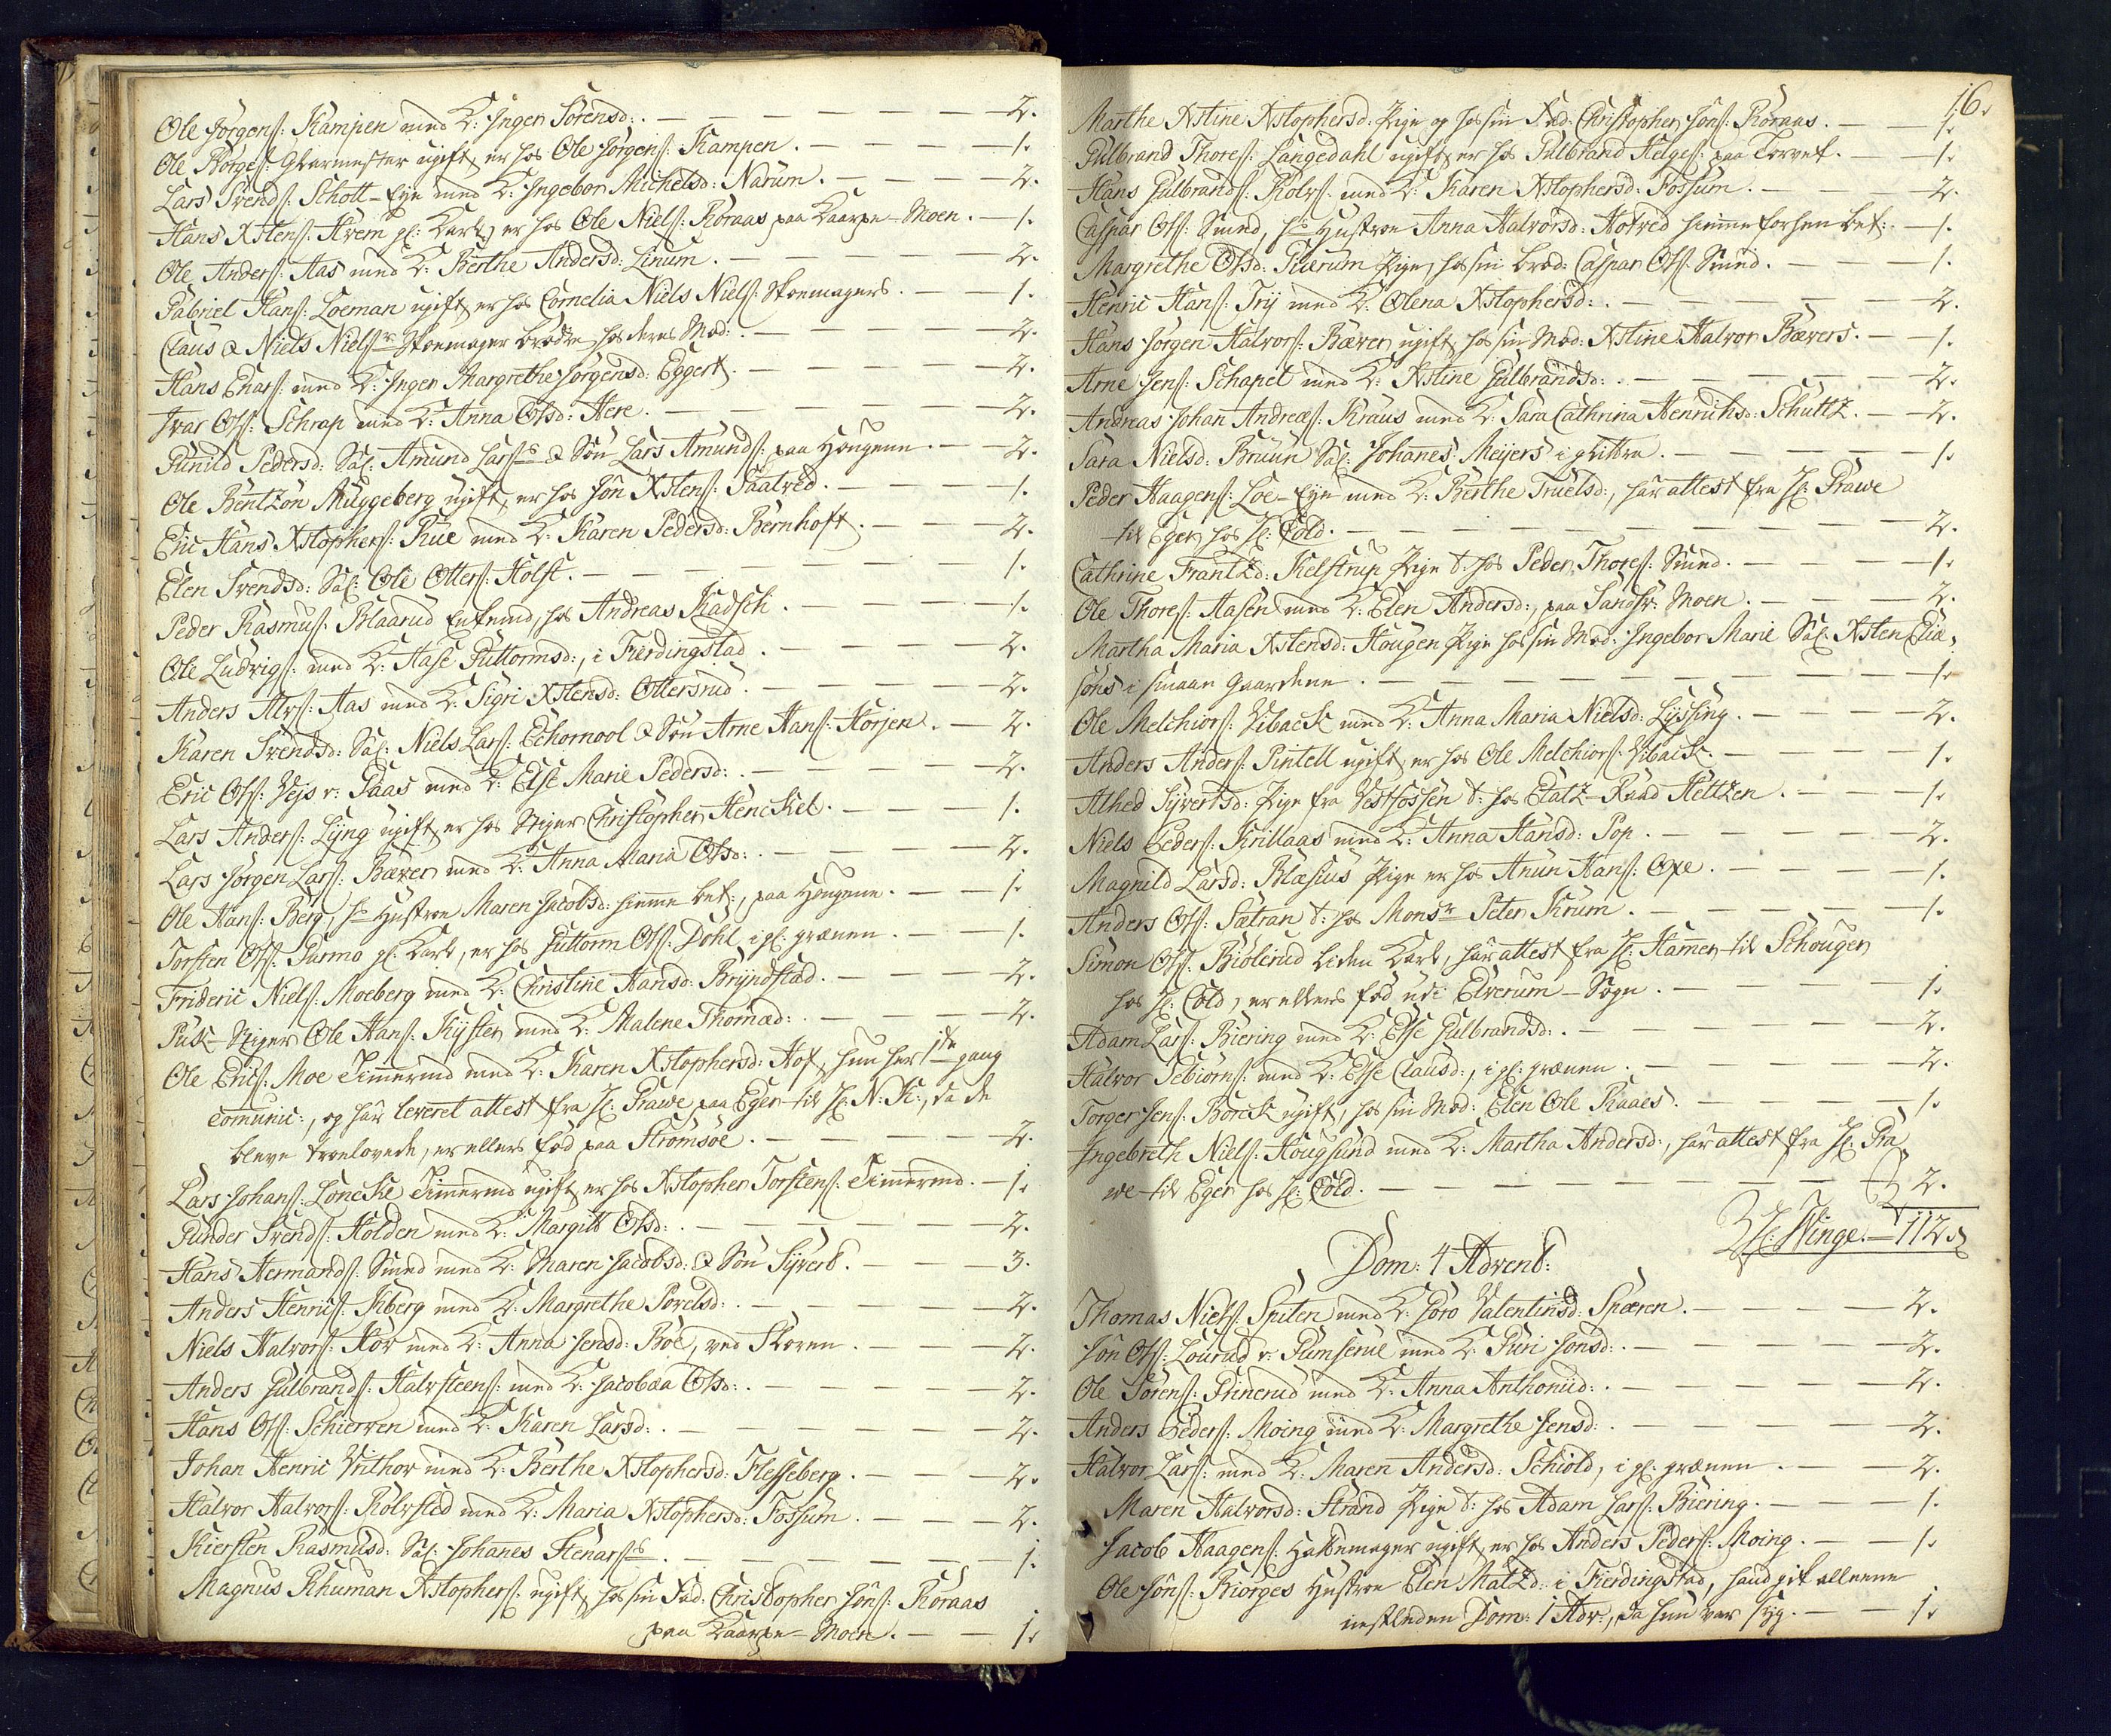 Ole Jørgens: Kampen med K: Inger Sørensd: . — — — — — — 2.
Ole Børges: Glarmester ugift, er hos Ole Jørgens: Kampen . — — — — 1.
Lars Svends: Schott-Eye med K: Ingebor Michelsd: Narum . — — — — 2.
Hans Xstens: Hvem gl: Karl, er hos Ole Niels: Røraas paa Kaarpe-Moen . — 1.
Ole Anders: Aas med K: Berthe Andersd: Linum . — — — — 2.
Gabriel Hans: Loeman ugift, er hos Cornelia Niels Niels: Skoemagers . — — 1.
Claus & Niels Niels: Skoemager brødre hos deres Mod: . — — — — 2.
Hans Enars: med K: Inger Margrethe Jørgensd: Eggert . — — — — 2.
Ivar Ols: Schrap med K: Anna Olsd: Here . — — — — 2.
Gunild Pedersd: Sal: Amund Lars: & Søn Lars Amunds: paa Hougene . — — 2.
Ole Bentzon Muggeberg ugift, er hos Jon Xstens: Saatved . — — — 1.
Eric Hans Xstophers: Rue med K: Karen Pedersd: Bernhoft . — — — 2.
Elen Svendsd: Sal: Ole Otters: Holst . — — — — — 1.
Peder Rasmus: Blaarud Enkemd, hos Andreas Kadsch . — — — — 1.
Ole Ludvigs: med K: Aase Guttormsd:, i Fierdingstad . — — — — 2.
Anders Alvs: Aas med K: Sigri Xstensd: Ottersrud . — — — — 2.
Karen Svendsd: Sal: Niels Lars: Echornool & Søn Arne Hans: Horjen . — 2.
Eric Ols: Vejs v: Gaas med K: Else Marie Pedersd: . — — — — 2.
Lars Anders: Lyng ugift, er hos Stiger Christopher Henckel . — — — 1.
Lars Jørgen Lars: Bæver med K: Anna Maria Olsd: . — — — — 2.
Ole Hans: Berg, hs Hustroe Maren Jacobsd: hiemme bet:, paa Hougene . — — 1.
Torsten Ols: Gurmo gl: Karl, er hos Guttorm Ols: Dohl i gl: grænen . — — 1.
Frideric Niels: Moeberg med K: Christine Hansd: Bryndstad . — — — 2.
Puk-Stiger Ole Hans: Kyster med K: Malene Thomæd: . — — — — 2.
Ole Erics: Moe Timmermd med K: Karen Xstophersd: Hof, hun her 1ste gang
Communic:, og haver leveret attest fra Hr: Grawe paa Eger til Hr: N: K:, da de
bleve troelovede, er ellers fød paa Strømsøe . — — — — 2.
Lars Johans: Loncke Timmermd ugift, er hos Xstopher Torstens: Timmermd . — 1.
Gunder Svends: Holden med K: Margitt Olsd: . — — — — 2.
Hans Hermands: Smed med K: Maren Jacobsd: & Søn Syvert . — — — 3.
Anders Henrics: Siberg med K: Margrethe Povelsd: . — — — — 2.
Niels Halvors: Hov med K: Anna Jensd: Boe, ved Skoven . — — — 2.
Anders Gulbrands: Halvsteens: med K: Jacobæa Olsd: . — — — — 2.
Hans Ols: Schierven med K: Karen Larsd: . — — — — 2.
Johan Henric Vrithor med K: Berthe Xstophersd: Flesseberg . — — — 2.
Halvor Halvors: Rolvsted med K: Maria Xstophersd: Fossum . — — — 2.
Kiersten Rasmusd: Sal: Johannes Stenars: . — — — — 1.
Magnus Rhuman Xstophers: ugift, hos sin Fad: Christopher Jøns: Røraas
paa Kaarpe-Moen . — — 1.
16.
Marthe Xstine Xstophersd: Pige og hos sin Fad: Christopher Jøns: Røraas . — — 1.
Gulbrand Thores: Langedahl ugift, er hos Gulbrand Helges: paa Torvet . — — 1.
Hans Gulbrands: Rolv: med K: Karen Xstophersd: Fossum . — — — 2.
Caspar Ols: Smed, hs Hustroe Anna Halvorsd: Hotved hiemme forhen bet: . — 1.
Margrethe Olsd: Tuerum Pige, hos sin brod: Caspar Ols: Smed . — — — 1.
Henric Hans: Try med K: Olena Xstophersd: . — — — — 2.
Hans Jørgen Halvors: Bæver ugift, hos sin Mod: Xstine Halvor Bævers . — — 1.
Arne Jens: Schapel med K: Xstine Gulbrandsd: . — — — — 2.
Andreas Johan Andreæs: Kraus med K: Sara Cathrina Henrichsd: Schultz . — — 2.
Sara Nielsd: Bruun Sal: Johannes Meyers i glittre . — — — — 1.
Peder Haagens: Loe-Eye med K: Berthe Truelsd:, har attest fra Hr: Grawe
til Eger, hos Hr: Cold . — — — — — 2.
Cathrine Frantzd: Kelstrup Pige t: hos Peder Thores: Smed . — — — — 1.
Ole Thores: Aasen med K: Elen Andersd:, paa Sandsv: Moen . — — — 2.
Martha Maria Xstensd: Hougen Pige hos sin Mod: Ingebor Marie Sal: Xsten Elia-
søns i smaae gaardene . — — — — — 1.
Ole Melchiors: Vibæck med K: Anna Maria Nielsd: Lyssing . — — — 2.
Anders Anders: Pintell ugift, er hos Ole Melchiors: Vibæck . — — — 1.
Alhed Syvertsd: Pige fra Vestfossen t: hos Etatz-Raad Heltzen . — — — 1.
Niels Peders: Krillaas med K: Anna Hansd: Pop . — — — — 2.
Magnild Larsd: Blæsius Pige er hos Anun Hans: Oxe . — — — 1.
Anders Ols: Sætran t: hos Monsr Peter Krum . — — — — 1.
Simon Ols: Biølerud liden Karl, har attest fra Hr: Hammer til Schouger
hos Hr: Cold, er ellers fød udi Elverum-Sogn . — — — 1.
Adam Lars: Biering med K: Else Gulbrandsd: . — — — — 2.
Halvor Tebiørns: med K: Else Clausd:, i gl: grænen . — — — — 2.
Torger Jens: Borck ugift, hos sin Mod: Elen Ole Raaes . — — — — 1.
Ingebreth Niels: Hougsund med K: Martha Andersd:, har attest fra Hr: Gra-
we til Eger hos Hr: Cold . — — — — — 2.
Hr: Winge . — 112.
Dom: 4 Advent:
Thomas Niels: Spiten med K: Goro Valentinsd: Spæren . — — — 2.
Jøn Ols: Lourud v: Gumserue med K: Guri Jonsd: . — — — — 2.
Ole Sørens: Prinerud med K: Anna Anthoniid: . — — — — 2.
Anders Peders: Moing med K: Margrethe Jensd: . — — — — 2.
Halvor Lars: med K: Maren Andersd: Schiold, i gl: grænen . — — — 2.
Maren Halvorsd: Strand Pige t: hos Adam Lars: Biering . — — — 1.
Jacob Haagens: Hattemager ugift, er hos Anders Peders: Moing . — — 1.
Ole Jøns: Biorges Hustroe Elen Matzd: i Fierdingstad, hand gik alleene
nestleden Dom: 1 Adv:, da hun var syg . — — 1.